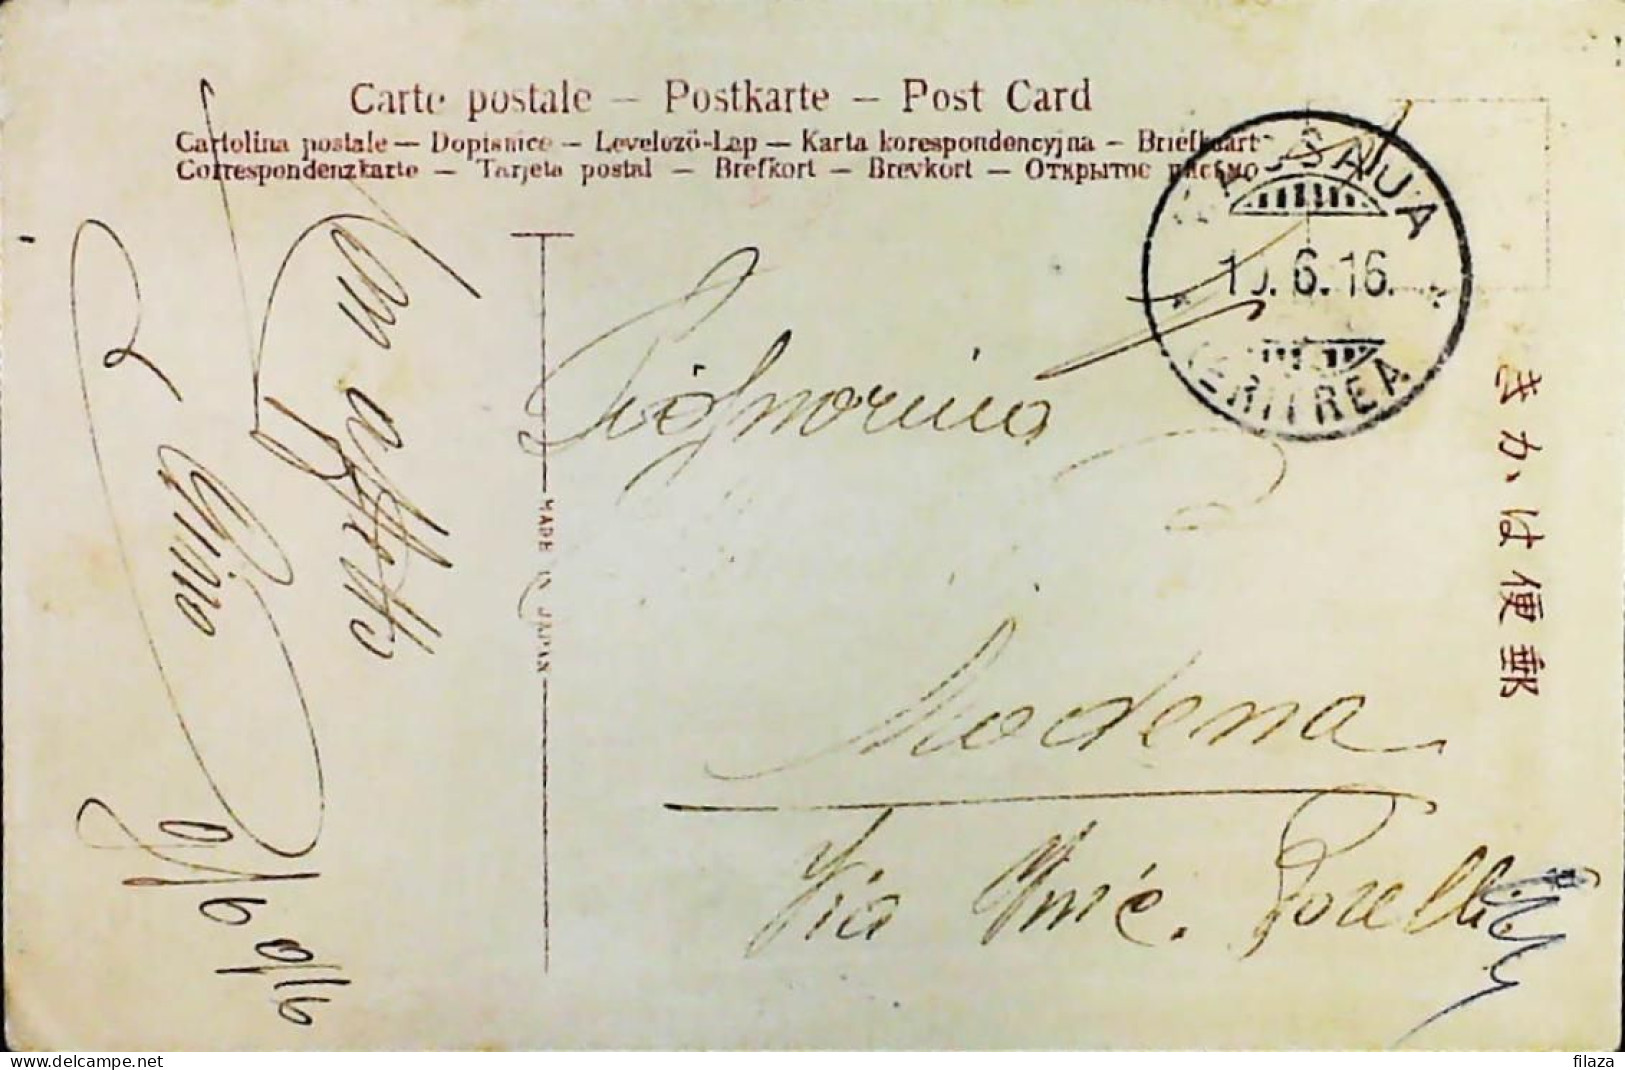 Carte postale – Postkarte – Post Card
Cartolina postale — Dopisnice — Levelezö-Lap — Karta korespondencyjna — Briefkaart
Correspondenzkarte — Tarjeta postal — Brefkort — Brevkort — Открытое письмо
MASSAUA
10.6.16.
(ERITREA)
郵便はかき
MADE IN JAPAN
Con affetto
Gino
Signorina
Modena
Via
9/6 916
filaza